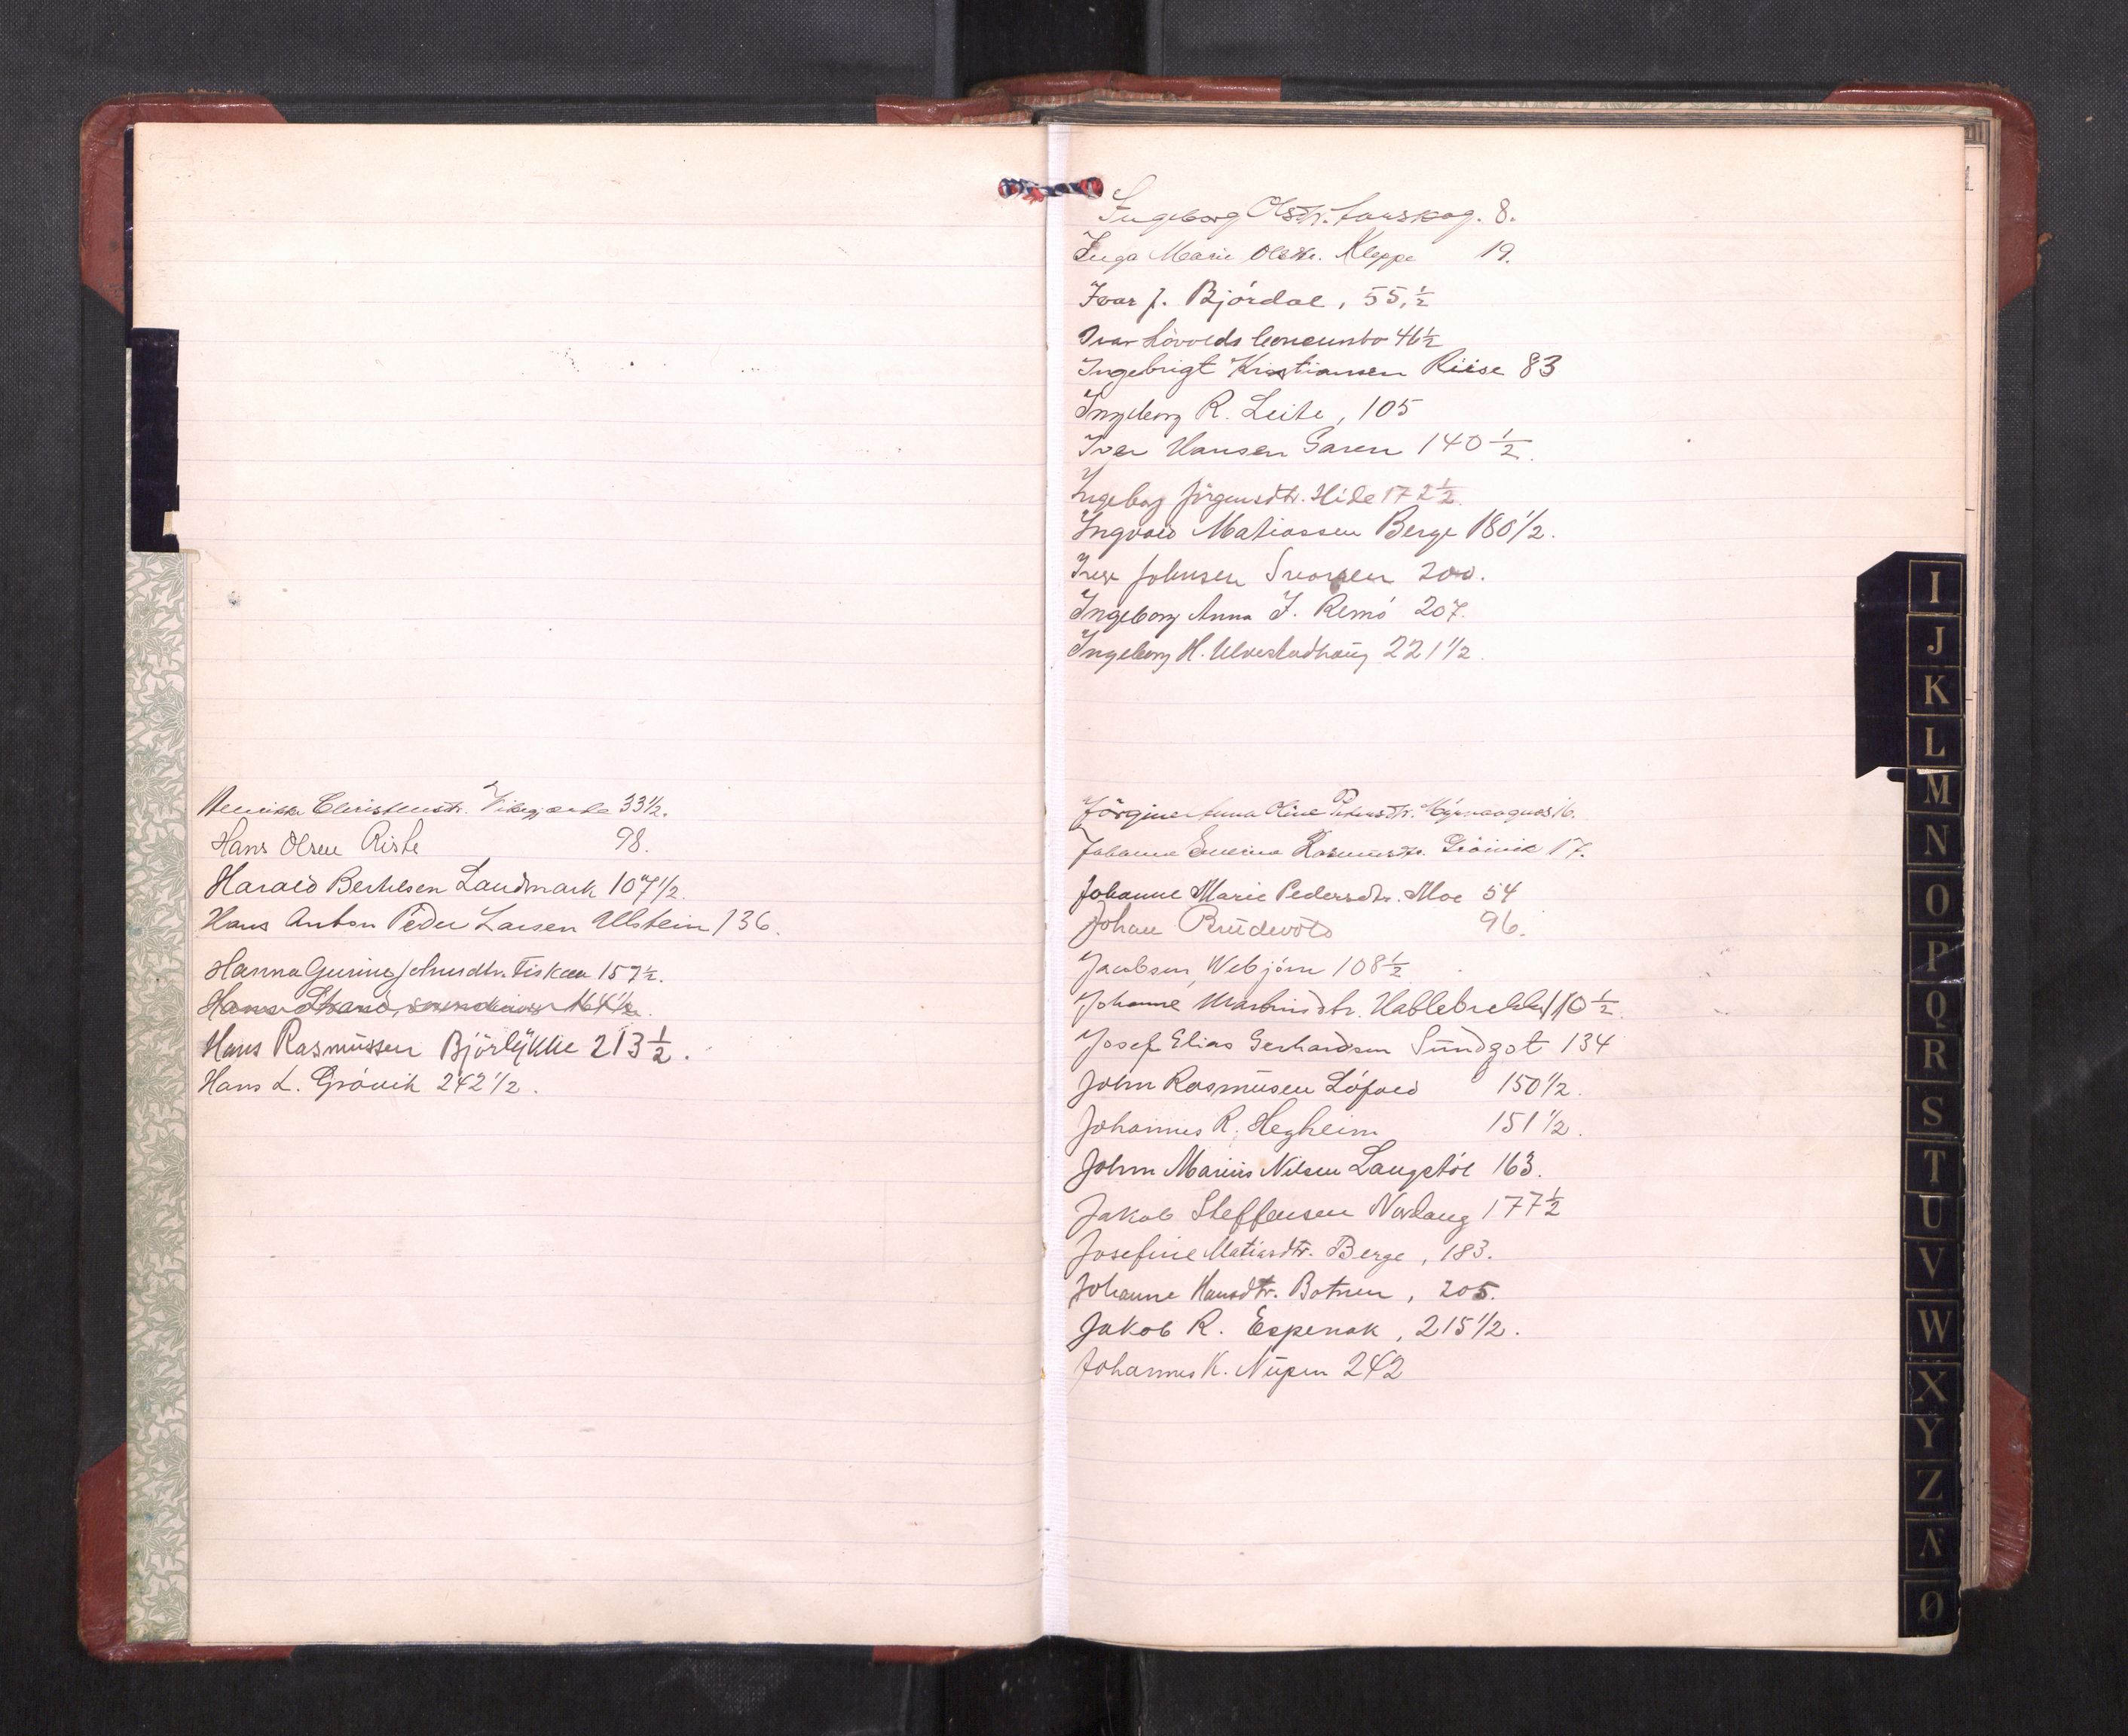 Henrikke Christensdtr. 33½.
Hans Olsen Riste 98.
Harald Bertelsen Landmark 107½.
Hans Anton Peder Larsen Ulstein 136.
Hanna Gurine Johnsdtr. Fiskaa 157½.
Hans Strand, 164½.
Hans Rasmüssen Björlÿkke 213½.
Hans L. Gróvik 242½.
Ingeborg Olsdtr. 8.
Inga Marie Olsdtr. Kleppe 19.
Ivar J. Bjórdal, 55,½
Ivar Lóvolds 46½
Ingebrigt Kristiansen Riise 83
Ingeborg R. Leite, 105
Iver Hansen Garen 140½.
Ingeborg Jörgensdtr. Hide 172½.
Ingvald Matiassen Berge 180½.
Johnsen 200.
Ingeborg Anna J. Remó 207.
Ingeborg H. Ulvestadhaug 221½.
Jörgine Anna Oline Petersdtr. 16.
Johanne Rasmusdtr. 17.
Johanne Marie Pedersdtr. Moe 54
Johan Brüdevold 96.
Jacobsen, Vebjörn 108½
Johanne Martinsdtr. Hatlebrekke 110½.
Josef Elias Gerhardsen Sündgot 134
John Rasmüsen Lófold 150½.
Johannes R. Hegheim 151½.
John Marius Nilsen Langstól 163.
Jakob Steffensen Nordang 177½
Josefine Matiasdtr. Berge, 183.
Johanne Hansdtr. Botnen, 205.
Jakob R. Espenak, 215½.
Johannes K. Nüpen 242
I
J
K
L
M
N
O
P
Q
R
S
T
U
V
W
X
Y
Z
Æ
Ø